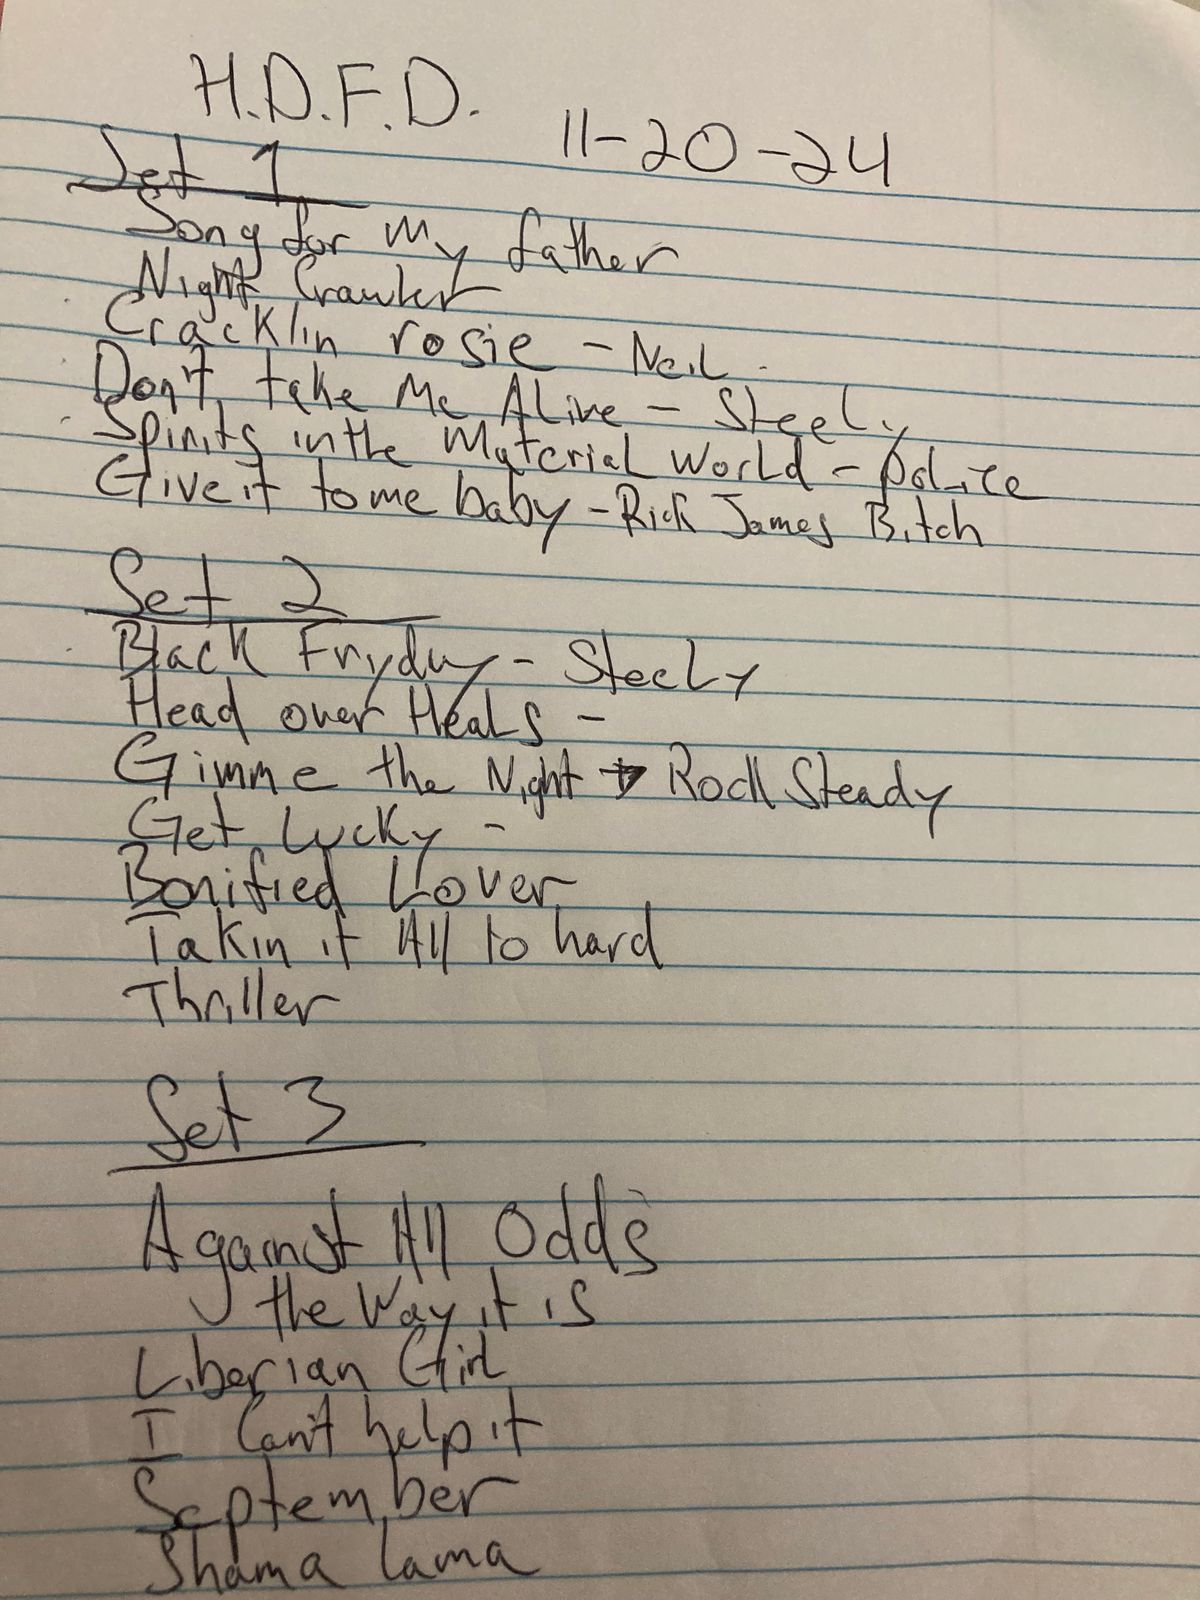 H.D.F.D.
11-20-24
Set 1
Song for My father
Night Crawler
Cracklin rosie - Neil
Don't take Me Alive - Steely
Spirits in the Material World - Police
Give it to me baby - Rick James Bitch
Set 2
Black Fryday - Steely
Head over Heals -
Gimme the Night → Rock Steady
Get Lucky -
Bonified Lover
Takin it All to hard
Thriller
Set 3
Against All Odds
the Way it is
Liberian Girl
I Can't help it
September
Shama lama